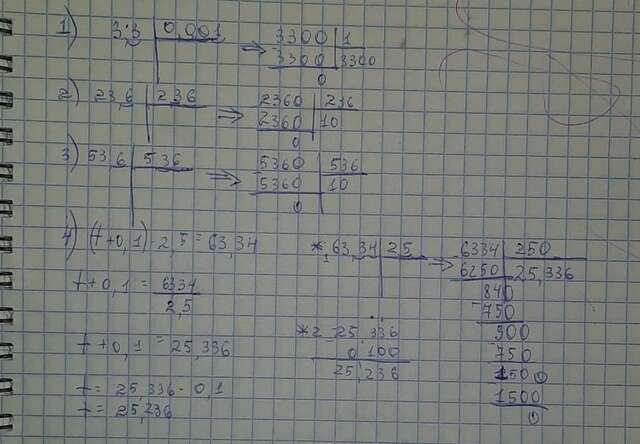 1) 3,3 | 0,001 ⇒ 3300 | 1
3300 | 3300
0
2) 23,6 | 236 ⇒ 2360 | 236
2360 | 10
0
3) 53 6 | 536 ⇒ 5360 | 536
5360 | 10
0
4) (t+0,1)·2,5=63,34
t+0,1 = 6334
2,5
t+0,1 = 25,336
t= 25,336-0,1
t= 25,236
*1 63,34 | 2 5 ⇒ 6334 | 250
6250 | 25,336
840
750
900
750
1500
1500
0
*2 25,336
0 100
25,236